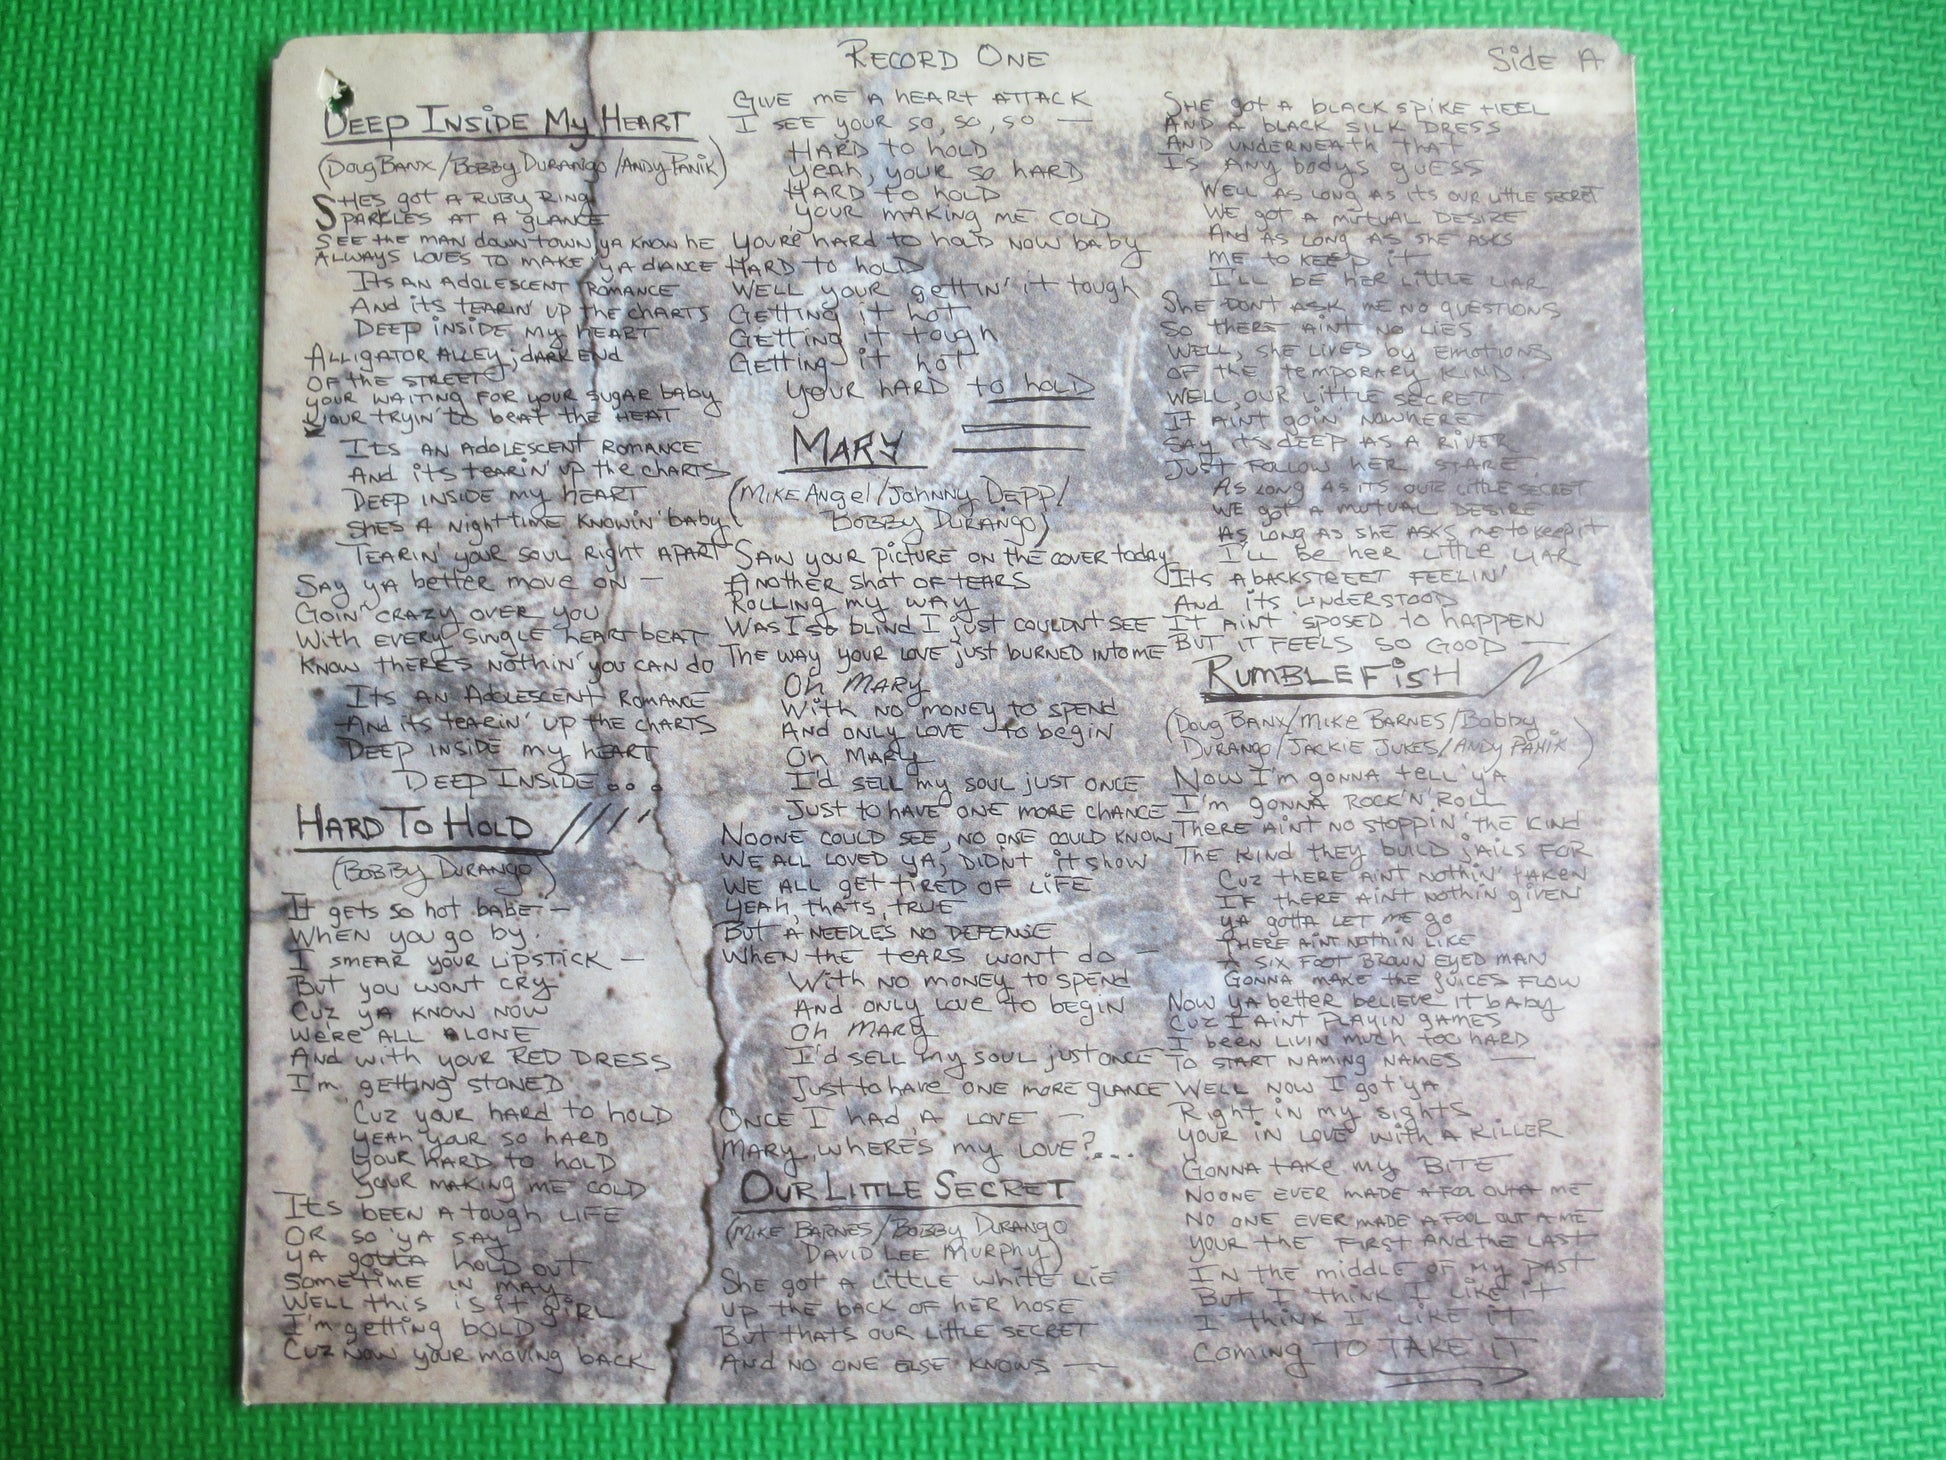 RECORD ONE
Side A
DEEP INSIDE My HEART
(Doug BANX/BOBBY DURANGO/ANDY PANIK)
SHES got A RUBY RING
SPARKLES AT A GLANCE
SEE the MAN downtown ya know he
ALWAYS LOVES TO MAKE YA dANCE
Its AN ADOLESCENT ROMANCE
And its TEARIN' UP the CHARTS
DEEP INSIDE my HEART
ALLIGATOR ALLEY, dARK ENd
OF the STREET
your WAITING FOR your sugar baby
your tryin' to beat the HEAT
Its AN Adolescent ROMANCE
And its tearin' up the CHARTS
DEEP INSIDE my HEART
SHES A Nighttime KNOWIN' baby
TEARIN' your SOUL Right APART
Say ya better move on —
Goin' CRAZY OVER YOU
With EVERY SINGLE HEART BEAT
KNOW thERES NOthIN' you CAN do
Its AN AdOLESCENT ROMANCE
And its tearin' up the CHARTS
DEEP INSIDE my HEART
DEEP INSIDE...
HARD To HOLD
(BOBBY DURANGO)
It gets so hot babe —
When you go by.
I SMEAR your LIPSTICK —
But you wont CRY
CUZ YA KNOW NOW
WERE ALL ALONE
And with your RED DRESS
I'm getting STONED
CUZ your hard to hold
YEAH your so HARD
your HARD to hold
your MAKING ME COLD
Its BEEN A tough LIFE
OR SO YA SAY
YA gotta hold out
SOMETIME IN MAY
WELL this is it GIRL
I'm getting BOLD
CUZ NOW your moving back
GIVE ME A HEART ATTACK
I SEE your SO, SO, SO —
HARD to HOLD
yeah, your so HARD
HARD to HOLD
your MAKING ME COLD
youRe hard to hold NOW baby
HARD to HOLD
WELL your gettin' it tough
GETTING it HOT
GETTING it tough
GETTING it HOT
your HARD to hold
MARY
(MIKE Angel/JOHNNY DEPP/
BOBBY DURANGO)
SAW your PICTURE ON the COVER today
ANOTHER Shot OF tEARS
ROLLING my WAY
WAS I so bLINd I just COULDNT SEE
The WAY your LOVE just BURNED INTO ME
Oh MARY
With NO MONEY to SPEND
And ONLY LOVE to begin
Oh MARY
I'd SELL my SOUL just ONCE
JUST to HAVE ONE MORE CHANCE
NOONE COULD SEE, NO ONE COULD KNOW
WE ALL LOVED YA, DIDNT it show
WE ALL GET TIRED OF LIFE
YEAH, thats, TRUE
But A NEEDLES NO DEFENSE
When the tEARS WONT do —
With NO MONEY to SPEND
And ONLY LOVE to begin
Oh MARY
I'd SELL my SOUL just ONCE
Just to have ONE MORE gLANCE
ONCE I had A LOVE —
MARY, WHERES my LOVE?...
OUR LITTLE SECRET
(MIKE BARNES/BOBBY DURANGO
DAVID LEE MURPHY)
She got A LITTLE white LIE
up the back OF HER HOSE
But thats OUR LITTLE SECRET
And NO ONE ELSE KNOWS —
SHE got A bLACK SPIKE HEEL
AND A bLACK SILK DRESS
AND UNDERNEATH that
IS ANY bodys GUESS
WELL AS LONG AS ITS OUR LITTLE SECRET
WE got A MUTUAL DESIRE
And AS LONG AS SHE ASKS
ME to KEEP it
I'LL BE HER LITTLE LIAR
SHE DONT ASK ME NO QUESTIONS
SO there AINT NO LIES
WELL, SHE LIVES by EMOTIONS
OF THE TEMPORARY KIND
WELL, OUR LITTLE SECRET
It AINT goin' NOWHERE
Say its DEEP AS A RIVER
Just FOLLOW HER STARE
AS LONG AS ITS OUR LITTLE SECRET
WE got A MUTUAL DESIRE
AS LONG AS SHE ASKS me to keep it
I'LL be her LITTLE LIAR
Its A BACKSTREET FEELIN'
And its UNDERSTOOD
It AINT 'SPOSED to HAPPEN
BUT IT FEELS SO GOOD —
RUMBLEFISH
(Doug BANX/MIKE BARNES/Bobby
DURANGO/JACKIE JUKES/ANDY PANIK)
NOW I'm gonna tell 'ya
I'm gonna ROCK'N'ROLL
THERE AINT NO stoppin' the KINd
The KINd they BUILD jAILS FOR
CUZ there AINT NOTHIN' TAKEN
IF THERE AINT NOTHIN GIVEN
ya gotta LET ME go
tHERE AINT NOTHIN LIKE
A SIX FOOT BROWN EYED MAN
GONNA MAKE the JUICES FLOW
NOW YA better believe it baby
CUZ I AINT PLAYIN GAMES
I been LIVIN much too HARD
To START NAMING NAMES —
WELL NOW I got ya
Right in my sights
YOUR IN LOVE WITH A KILLER
GONNA take my BITE
NOONE EVER MADE A FOOL OUTA ME
NO ONE EVER MADE A FOOL OUT A ME
YOUR the FIRST And the LAST
IN the MIDDLE OF My PAST
But I think I LIKE it
I think I LIKE it
Coming TO TAKE IT